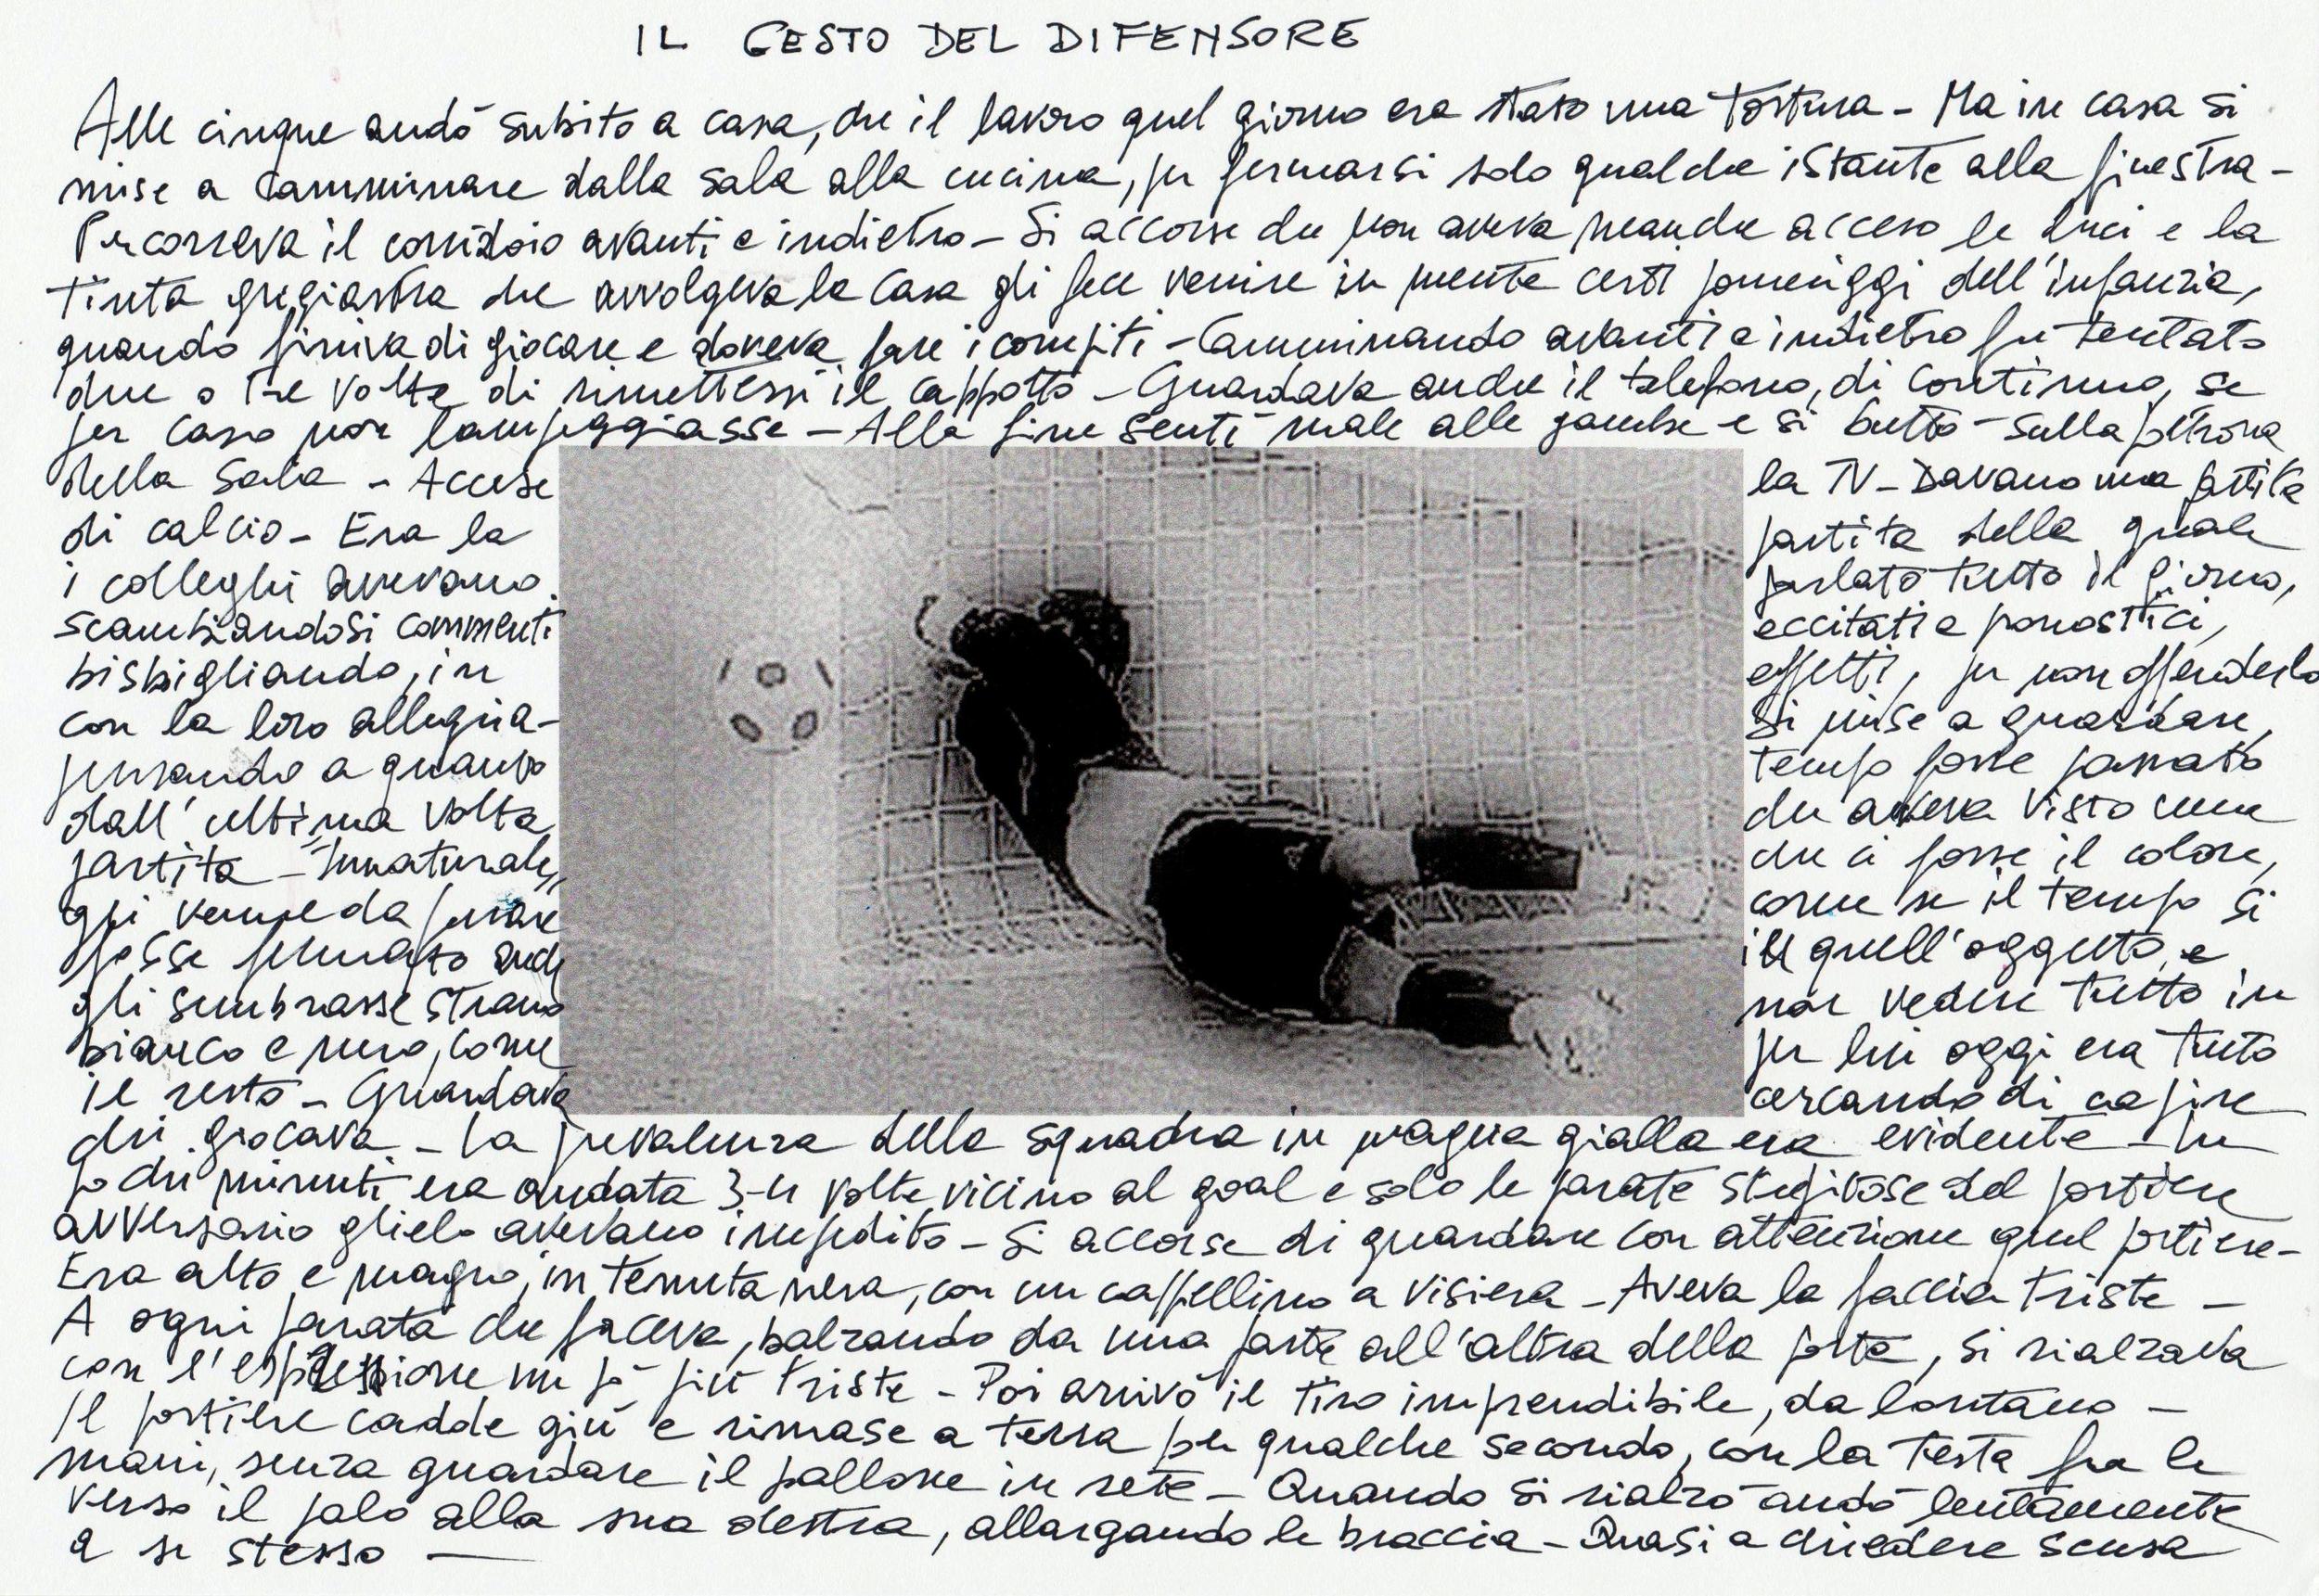 IL GESTO DEL DIFENSORE
Alle cinque andò subito a casa, che il lavoro quel giorno era stato una tortura - Ma in casa si
mise a camminare dalla sala alla cucina, per fermarsi solo qualche istante alla finestra -
Percorreva il corridoio avanti e indietro - Si accorse che non aveva neanche acceso le luci e la
tinta grigiastra che avvolgeva la casa gli fece venire in mente certi pomeriggi dell'infanzia,
quando finiva di giocare e doveva fare i compiti - Camminando avanti e indietro fu tentato
due o tre volte di rimettersi il cappotto - Guardava anche il telefono, di continuo, se
per caso non lampeggiasse - Alla fine sentì male alle gambe e si buttò sulla poltrona
della sala - Accese la TV - Davano una partita
di calcio - Era la partita della quale
i colleghi avevano parlato tutto il giorno,
scambiandosi commenti eccitati e pronostici,
bisbigliando, in effetti, per non offenderlo
con la loro allegria - Si mise a guardare,
pensando a quanto tempo fosse passato
dall'ultima volta che aveva visto una
partita - Innaturale, che ci fosse il colore,
gli venne da pensare come se il tempo si
fosse fermato anche in quell'oggetto, e
gli sembrasse strano non vedere tutto in
bianco e nero, come per lui oggi era tutto
il resto - Guardava cercando di capire
chi giocava - La prevalenza della squadra in maglia gialla era evidente - In
pochi minuti era andata 3-4 volte vicino al goal e solo le parate strepitose del portiere
avversario glielo avevano impedito - Si accorse di guardare con attenzione quel portiere -
Era alto e magro, in tenuta nera, con un cappellino a visiera - Aveva la faccia triste -
A ogni parata che faceva, balzando da una parte all'altra della porta, si rialzava
con l'espressione un pò più triste - Poi arrivò il tiro imprendibile, da lontano -
Il portiere cadde giù e rimase a terra per qualche secondo, con la testa fra le
mani, senza guardare il pallone in rete - Quando si rialzò andò lentamente
verso il palo alla sua destra, allargando le braccia - Quasi a chiedere scusa
a se stesso -